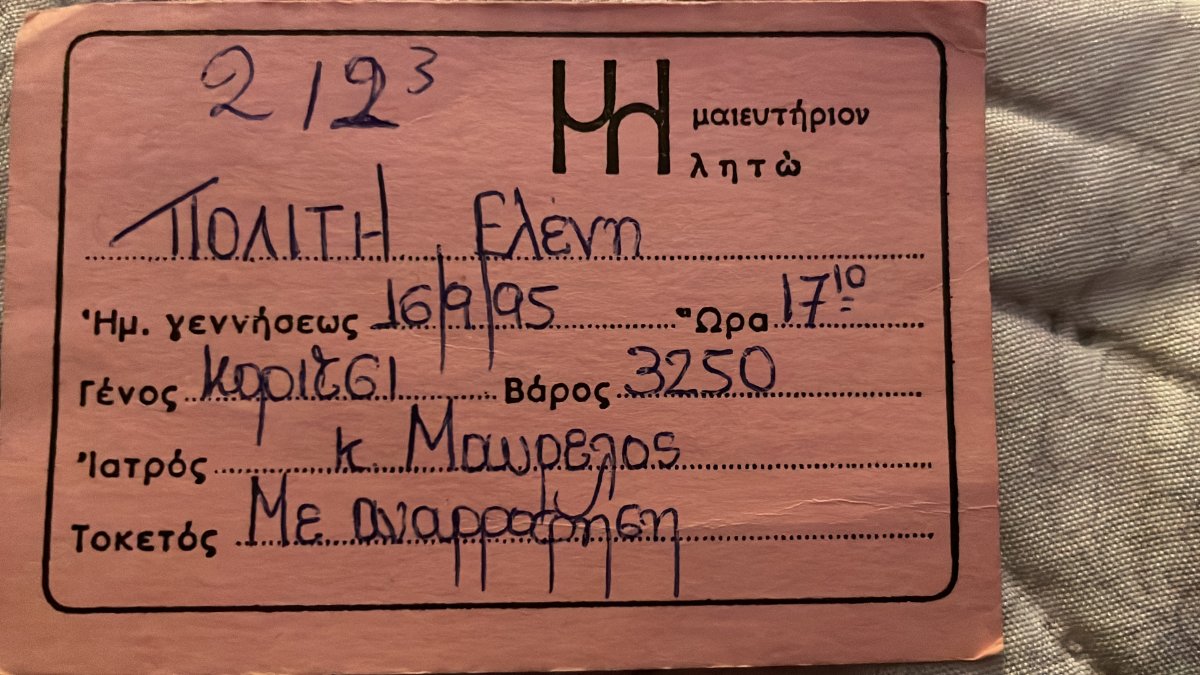 212³
μαιευτήριον
λητὼ
ΠΟΛΙΤΗ Ελένη
Ἡμ. γεννήσεως 16/9/95 Ὥρα 17¹⁰
Γένος Κοριτσι Βάρος 3250
Ἰατρός κ. Μαυρελος
Τοκετός Με αναρροφηση